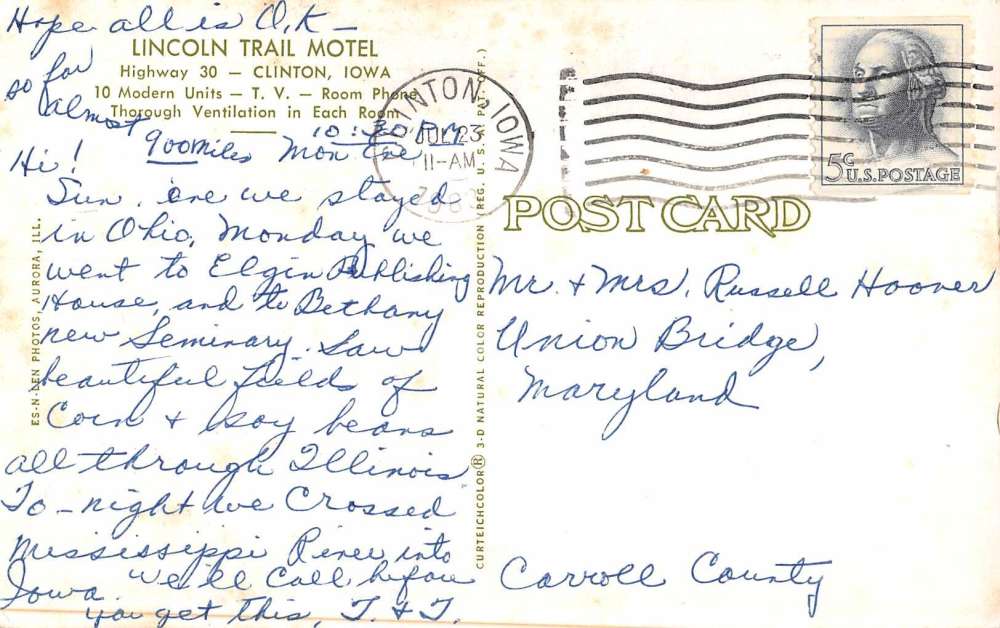 Hope all is O.K -
so far
almost
900 miles
LINCOLN TRAIL MOTEL
Highway 30 — CLINTON, IOWA
10 Modern Units — T. V. — Room Phone
Thorough Ventilation in Each Room
10:30 P.M.
Mon Eve
Hi!
Sun. eve we stayed
in Ohio, Monday we
went to Elgin Publishing
House, and to Bethany
new Seminary. Saw
beautiful fields of
Corn & soy beans
all through Illinois
To-night we Crossed
Mississippi River into
Iowa. we'll Call before
you get this, T. & T.
ES-N-LEN PHOTOS, AURORA, ILL.
CURTEICHCOLOR® 3-D NATURAL COLOR REPRODUCTION (REG. U. S. A. PAT. OFF.)
CLINTON, IOWA
JUL 23
11-AM
5c
U.S. POSTAGE
POST CARD
Mr. & Mrs. Russell Hoover
Union Bridge,
Maryland
Carroll County